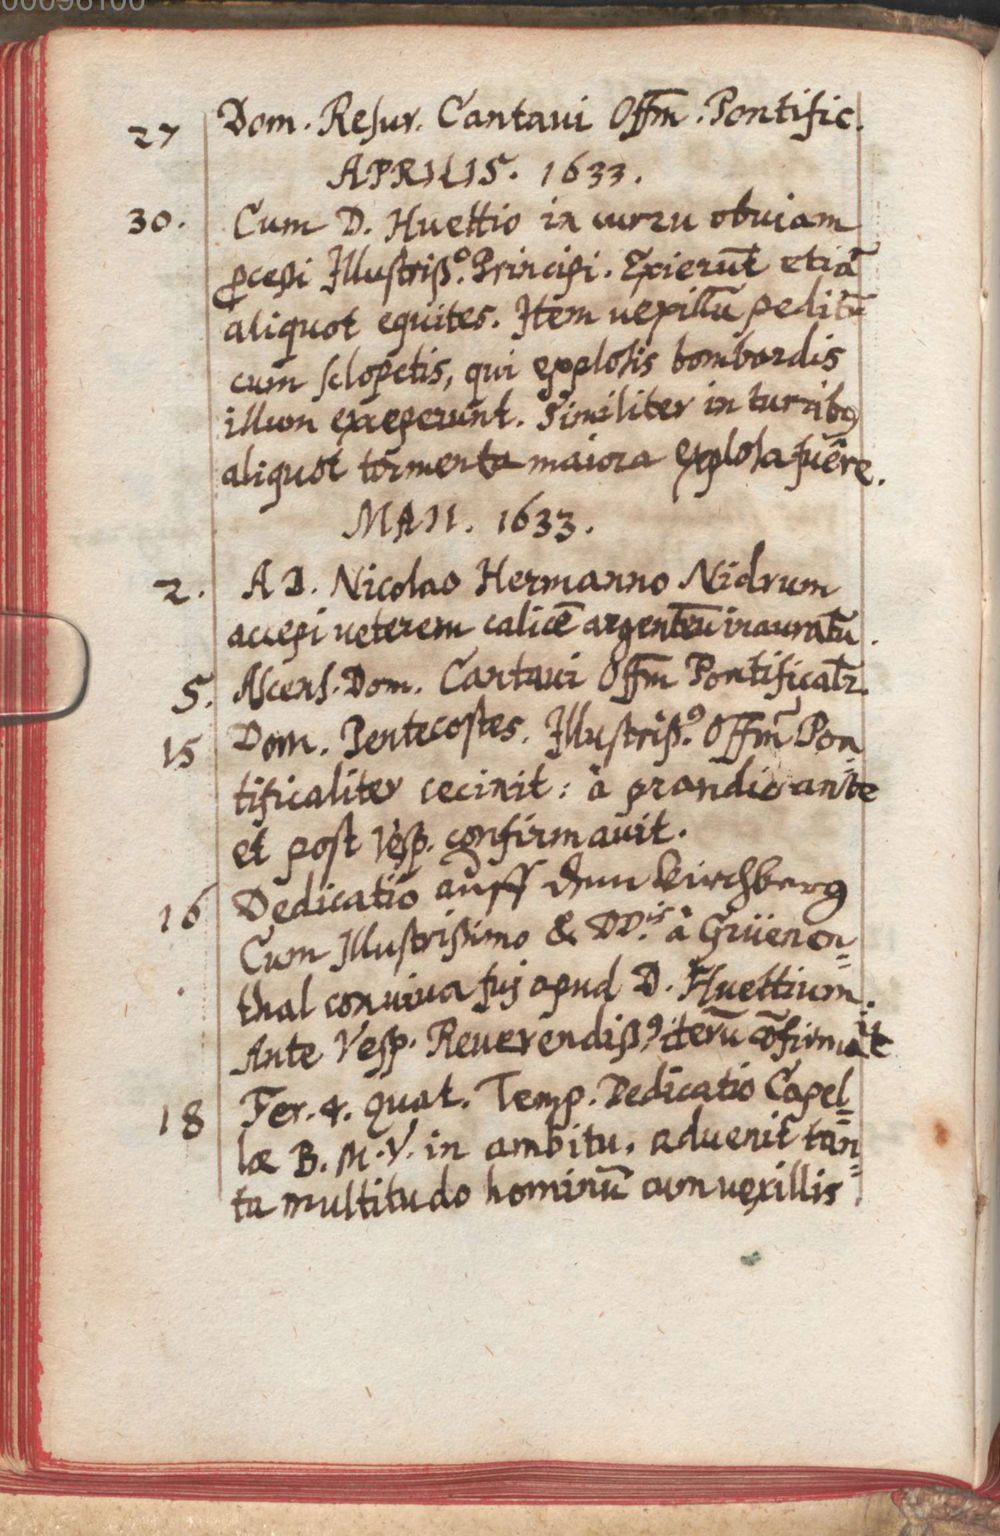 00096100
27 Dom. Resur. Cantaui Offm̄. Pontific.
APRILIS. 1633.
30. Cum D. Huettio in curru obuiam
ꝓcessi Illustriß.º Principi. Exierūt etiā
aliquot equites. Item uexillū peditū
cum sclopetis, qui explosis bombardis
illum exceperunt. Similiter in turribꝯ
aliquot tormenta maiora explosa fuêre.
MAII. 1633.
2. A D. Nicolao Hermanno Nidrum
accepi ueterem calicē argenteū inauratū.
5. Ascens. Dom. Cantaui Offm̄ Pontificalr̄.
15 Dom. Pentecostes. Illustriß.ꝰ Offm̄ Pon=
tificaliter cecinit: à prandio ante
et post Vesp. confirmauit.
16 Dedicatio auff dem Kirchberg
Cum Illustrißimo & DD.is à Grüenen=
thal conuiua fui apud D. Huettium.
Ante Vesp. Reuerendiß.ꝰ iterū cōfirmauit
18 Fer. 4. quat. Temp. Dedicatio Capel=
læ B. M. V. in ambitu. aduenit tan=
ta multitudo hominū cum uexillis